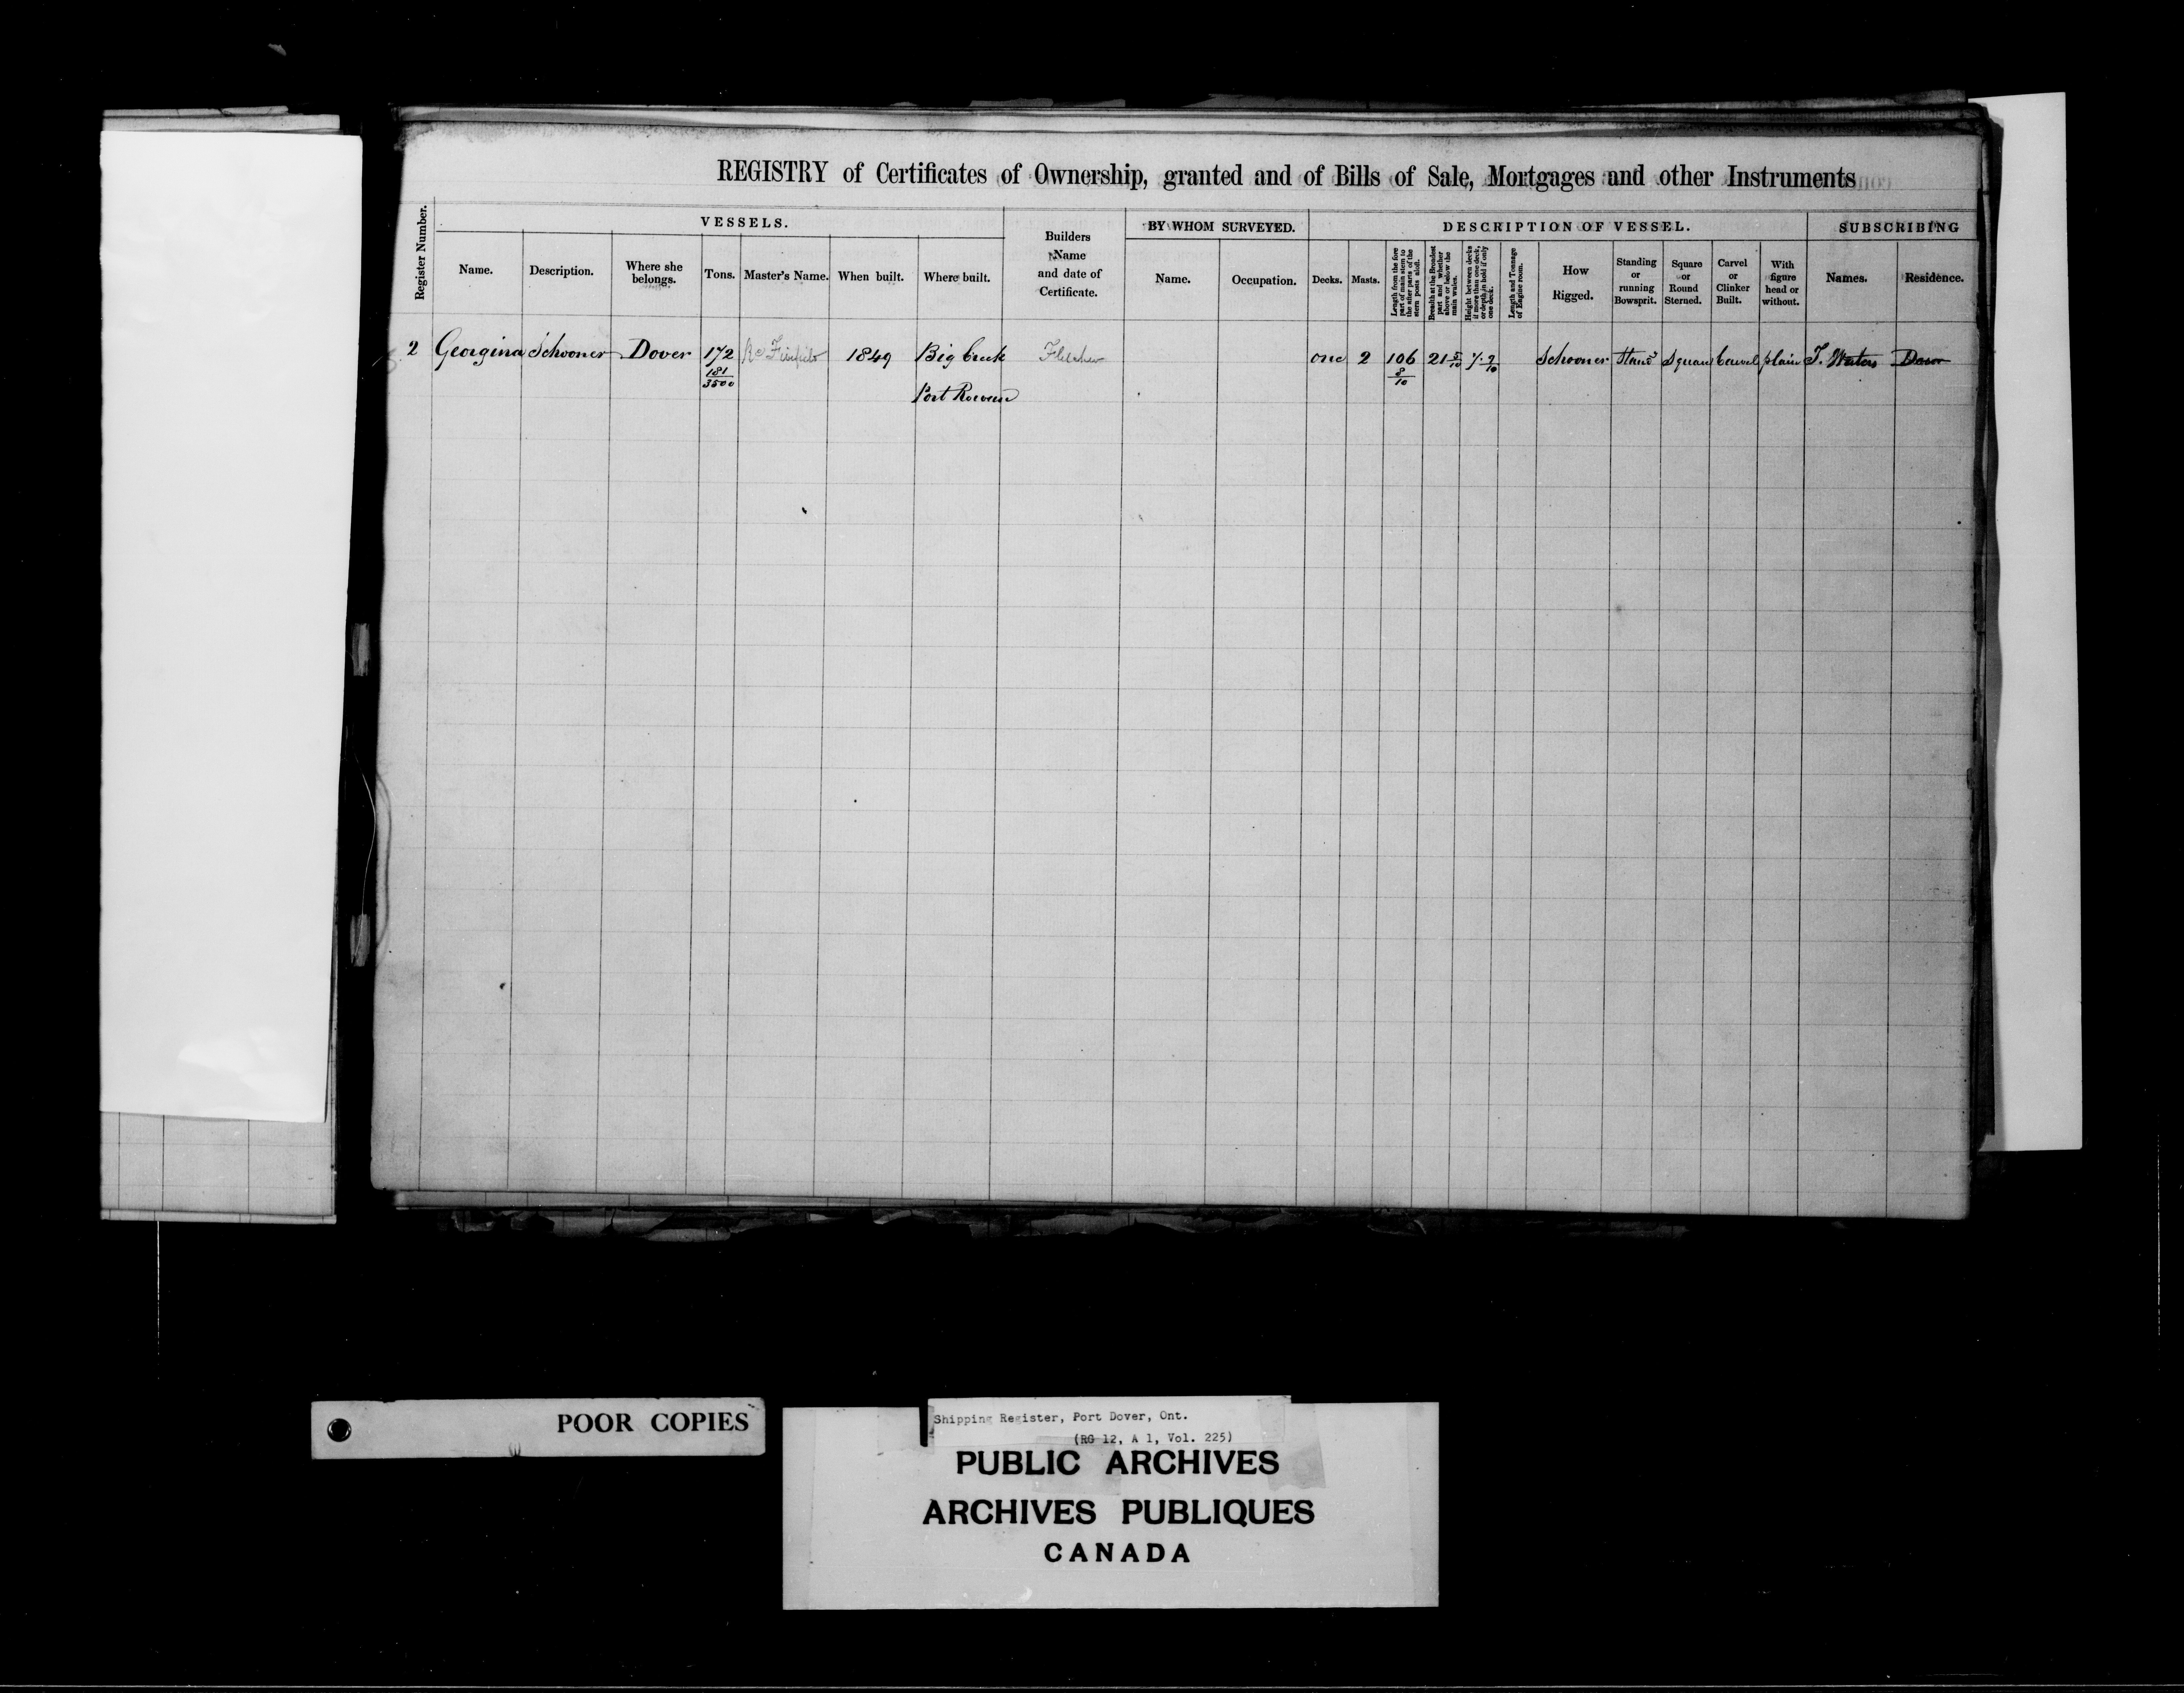 REGISTRY of Certificates of Ownership, granted and of Bills of Sale, Mortgages and other Instruments
Register Number.
VESSELS.
Name.
Description.
Where she
belongs.
Tons.
Master's Name.
When built.
Where built.
Builders
Name
and date of
Certificate.
BY WHOM SURVEYED.
Name.
Occupation.
DESCRIPTION OF VESSEL.
Decks.
Masts.
Length from the fore
part of main stem to
the after parts of the
stern posts aloft.
Breadth at the Broadest
part and whether
above or below the
main wales.
Height between decks
if more than one deck,
or depth in hold if only
one deck.
Length and Tonnage
of Engine room.
How
Rigged.
Standing
or
running
Bowsprit.
Square
or
Round
Sterned.
Carvel
or
Clinker
Built.
With
figure
head or
without.
SUBSCRIBING
Names.
Residence.
2 Georgina Schooner Dover 172 1849 Big Creek Fletcher one 2 106 21 5/10 Schooner Stand Square Carvel plain T. Waters Dover
181/3500
8/10
Port Rowan
POOR COPIES
Shipping Register, Port Dover, Ont.
(RG 12, A 1, Vol. 225)
PUBLIC ARCHIVES
ARCHIVES PUBLIQUES
CANADA